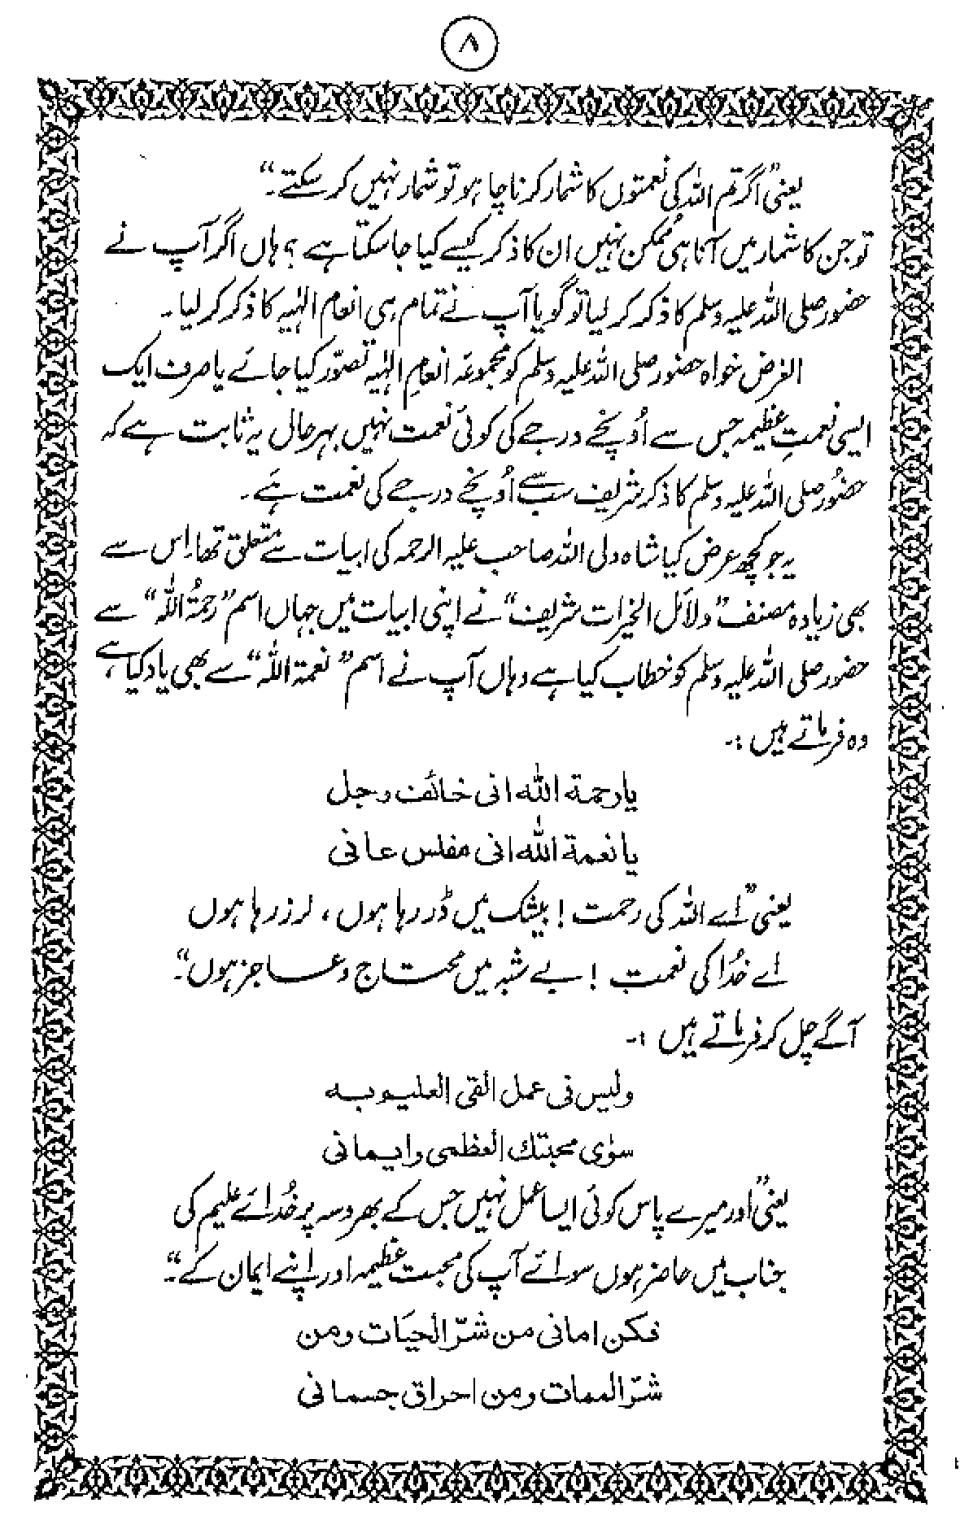 ۸
یعنی ”اگر تم اللہ کی نعمتوں کا شمار کرنا چاہو تو شمار نہیں کر سکتے۔“
تو جن کا شمار میں آنا ہی ممکن نہیں ان کا ذکر کیسے کیا جا سکتا ہے؟ ہاں اگر آپ نے
حضور صلی اللہ علیہ وسلم کا ذکر کر لیا تو گویا آپ نے تمام ہی انعام الٰہیہ کا ذکر کر لیا۔
الغرض خواہ حضور صلی اللہ علیہ وسلم کو مجموعۂ انعامِ الٰہیہ تصوّر کیا جائے یا صرف ایک
ایسی نعمتِ عظیمہ جس سے اُونچے درجے کی کوئی نعمت نہیں بہرحال یہ ثابت ہے کہ
حضُور صلی اللہ علیہ وسلم کا ذکر شریف سب سے اُونچے درجے کی نعمت ہے۔
یہ جو کچھ عرض کیا شاہ ولی اللہ صاحب علیہ الرحمہ کی ابیات سے متعلق تھا۔ اِس سے
بھی زیادہ مصنف ”دلائل الخیرات شریف“ نے اپنی ابیات میں جہاں اسم ”رحمۃُ اللہ“ سے
حضور صلی اللہ علیہ وسلم کو خطاب کیا ہے وہاں آپ نے اسم ”نعمۃ اللہ“ سے بھی یاد کیا ہے
وہ فرماتے ہیں :۔
یا رحمة الله انی خائف وجل
یا نعمة الله انی مفلس عانی
یعنی ”اے اللہ کی رحمت! بیشک میں ڈر رہا ہوں، لرز رہا ہوں
اے خُدا کی نعمت! بے شبہ میں محتاج و عاجز ہوں“۔
آگے چل کر فرماتے ہیں :۔
ولیس لی عمل القی العلیم به
سوٰی محبتك العظمی وایمانی
یعنی ”اور میرے پاس کوئی ایسا عمل نہیں جس کے بھروسہ پر خُدائے علیم کی
جناب میں حاضر ہوں سوائے آپ کی محبت عظیمہ اور اپنے ایمان کے“۔
فکن امانی من شرّ الحیات ومن
شرّ الممات ومن احراق جسمانی